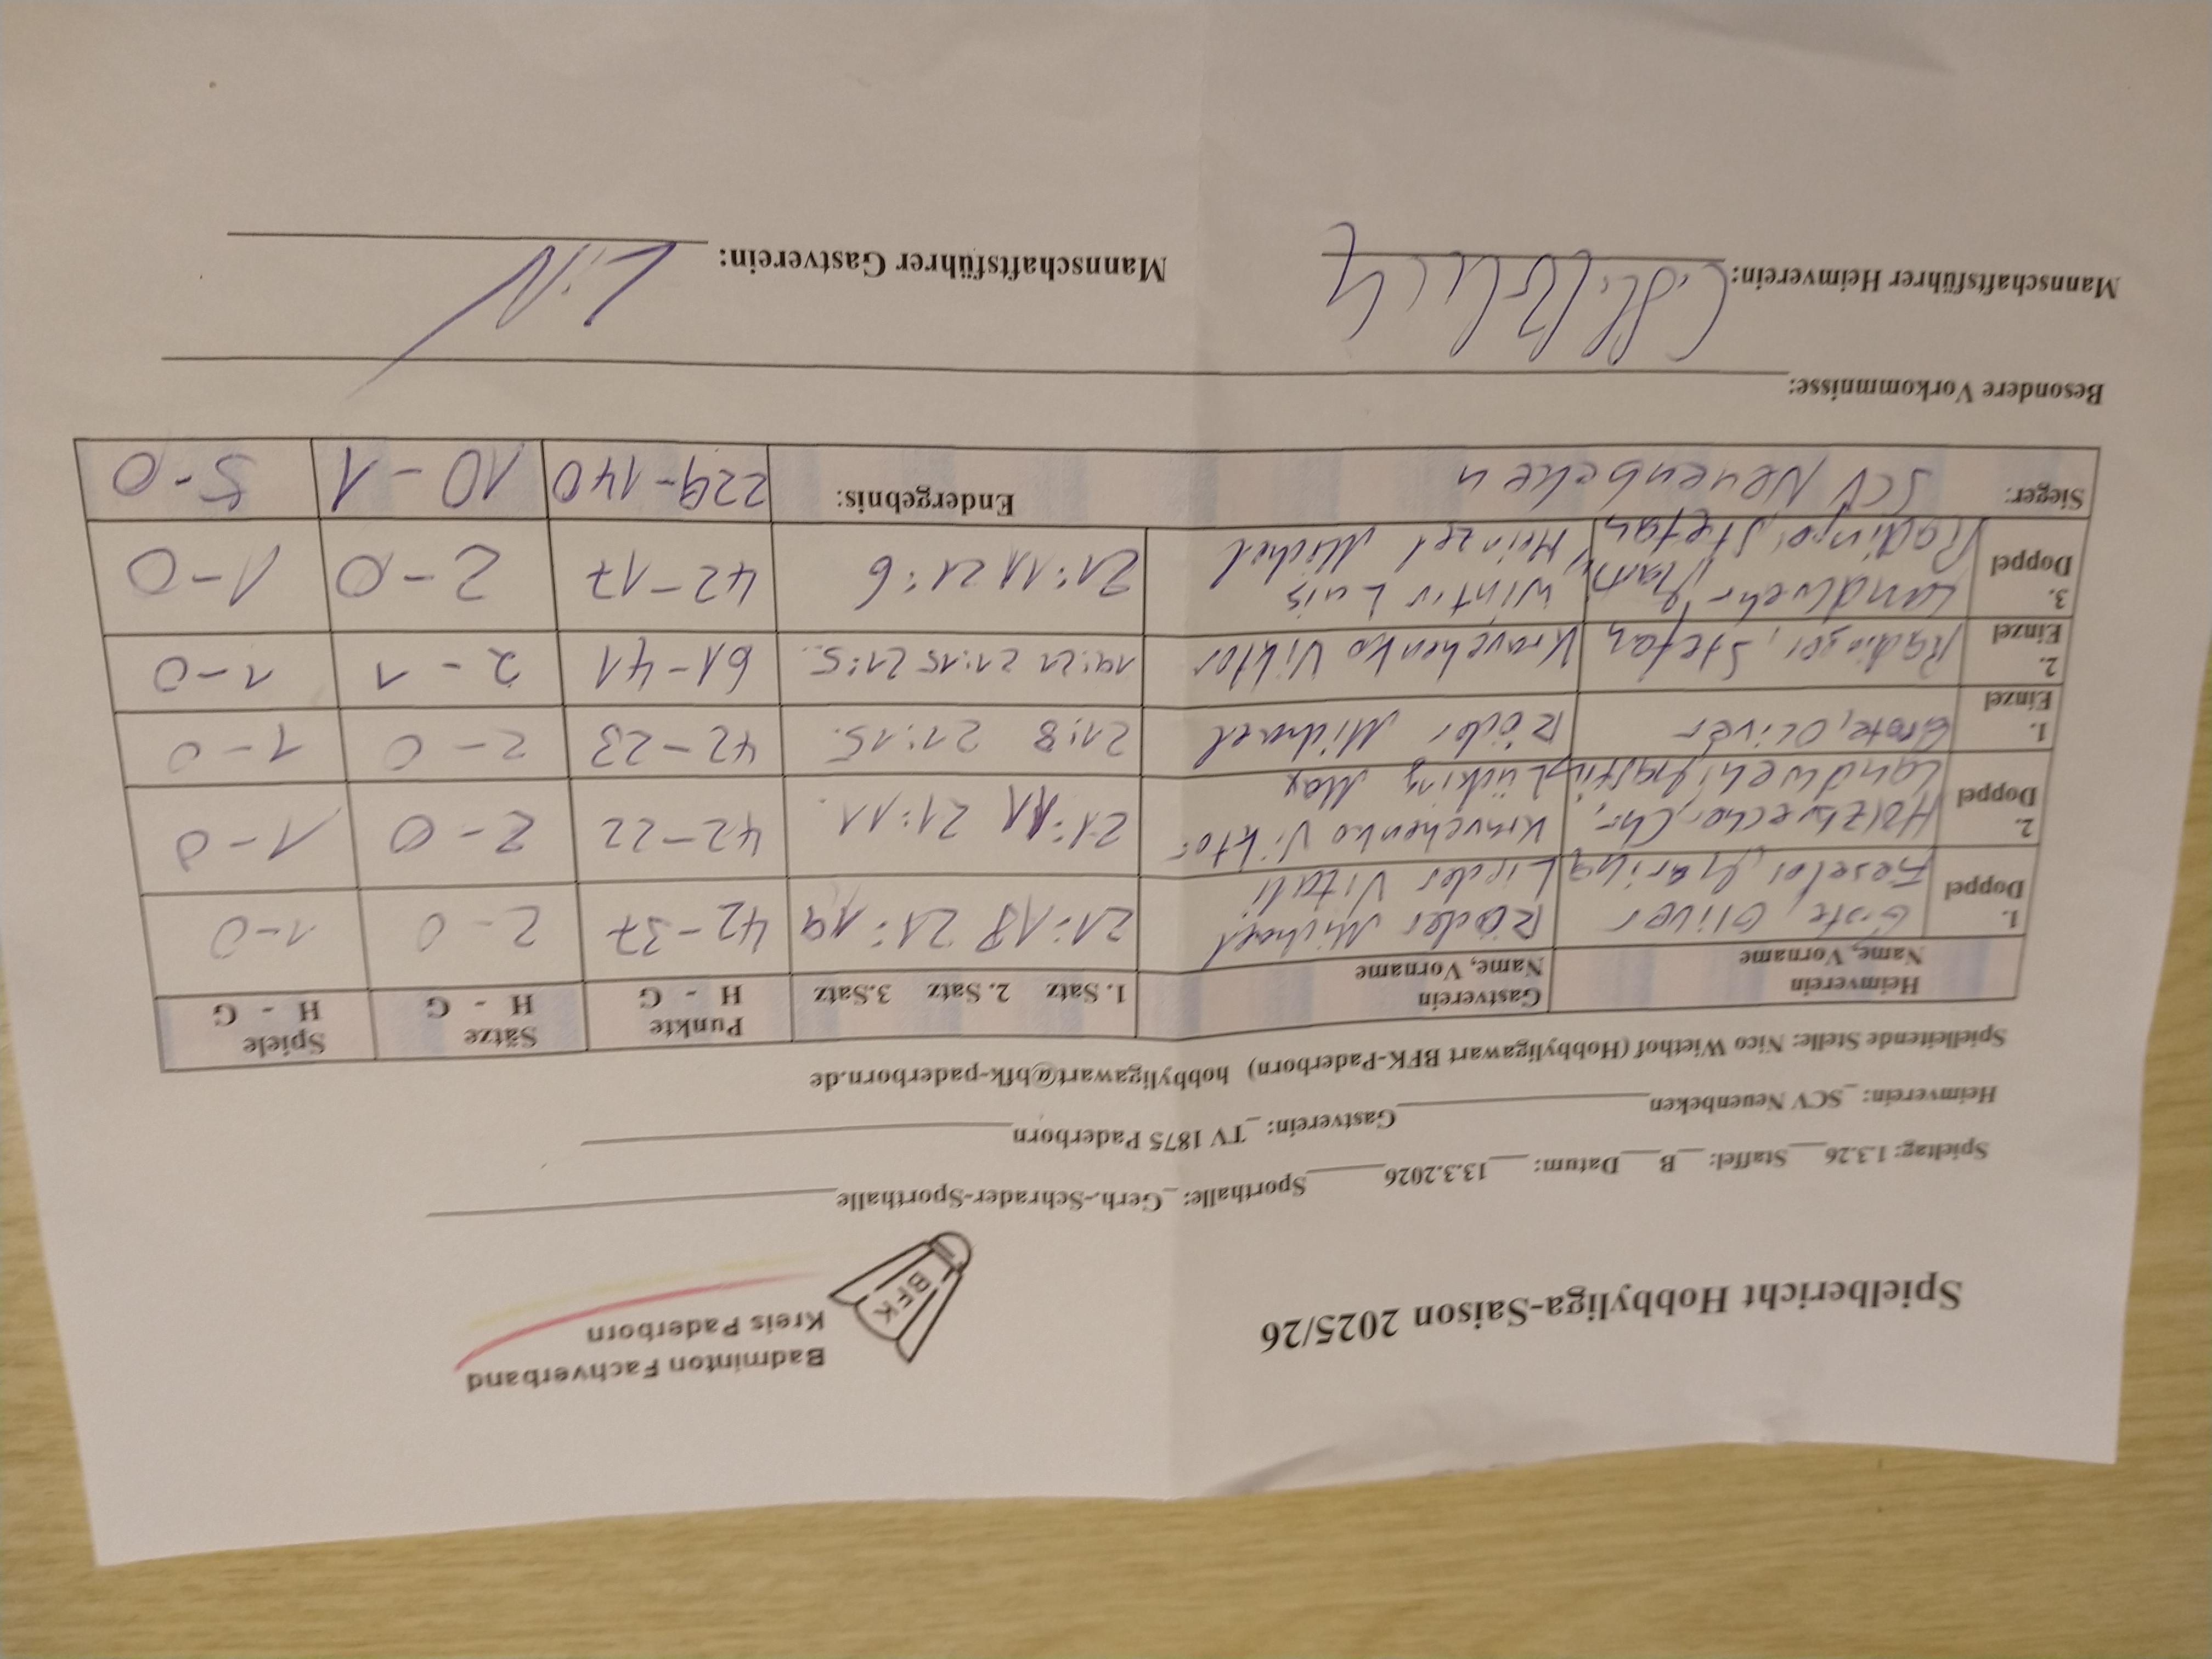 Badminton Fachverband
Kreis Paderborn
BFK
Spielbericht Hobbyliga-Saison 2025/26
Spieltag: 1.3.26 Staffel: B Datum: 13.3.2026 Sporthalle: Gerh.-Schrader-Sporthalle
Heimverein: SCV Neuenbeken Gastverein: TV 1875 Paderborn
Spielleitende Stelle: Nico Wiethof (Hobbyligawart BFK-Paderborn) hobbyligawart@bfk-paderborn.de
Heimverein Name, Vorname Gastverein Name, Vorname 1. Satz 2. Satz 3.Satz Punkte H - G Sätze H - G Spiele H - G
1. Doppel Grote, Oliver Röder Michael 21:18 21:19 42-37 2-0 1-0
Lieder Vitali
2. Doppel Holzbrecher, Chr., Kravchenko Viktor 21:11 21:11. 42-22 2-0 1-0
Landwehr, Lücking Max
1. Einzel Grote, Oliver Röder Michael 21:8 21:15. 42-23 2-0 1-0
2. Einzel Radinger, Stefan Kravchenko Viktor 19:21 21:15 21:5. 61-41 2-1 1-0
3. Doppel Landwehr, Winter Luis 21:11 21:6 42-17 2-0 1-0
Radinger, Stefan Heinzel Michel
Sieger: SCV Neuenbeken Endergebnis: 229-140 10-1 5-0
Besondere Vorkommnisse:
Mannschaftsführer Heimverein: Mannschaftsführer Gastverein: